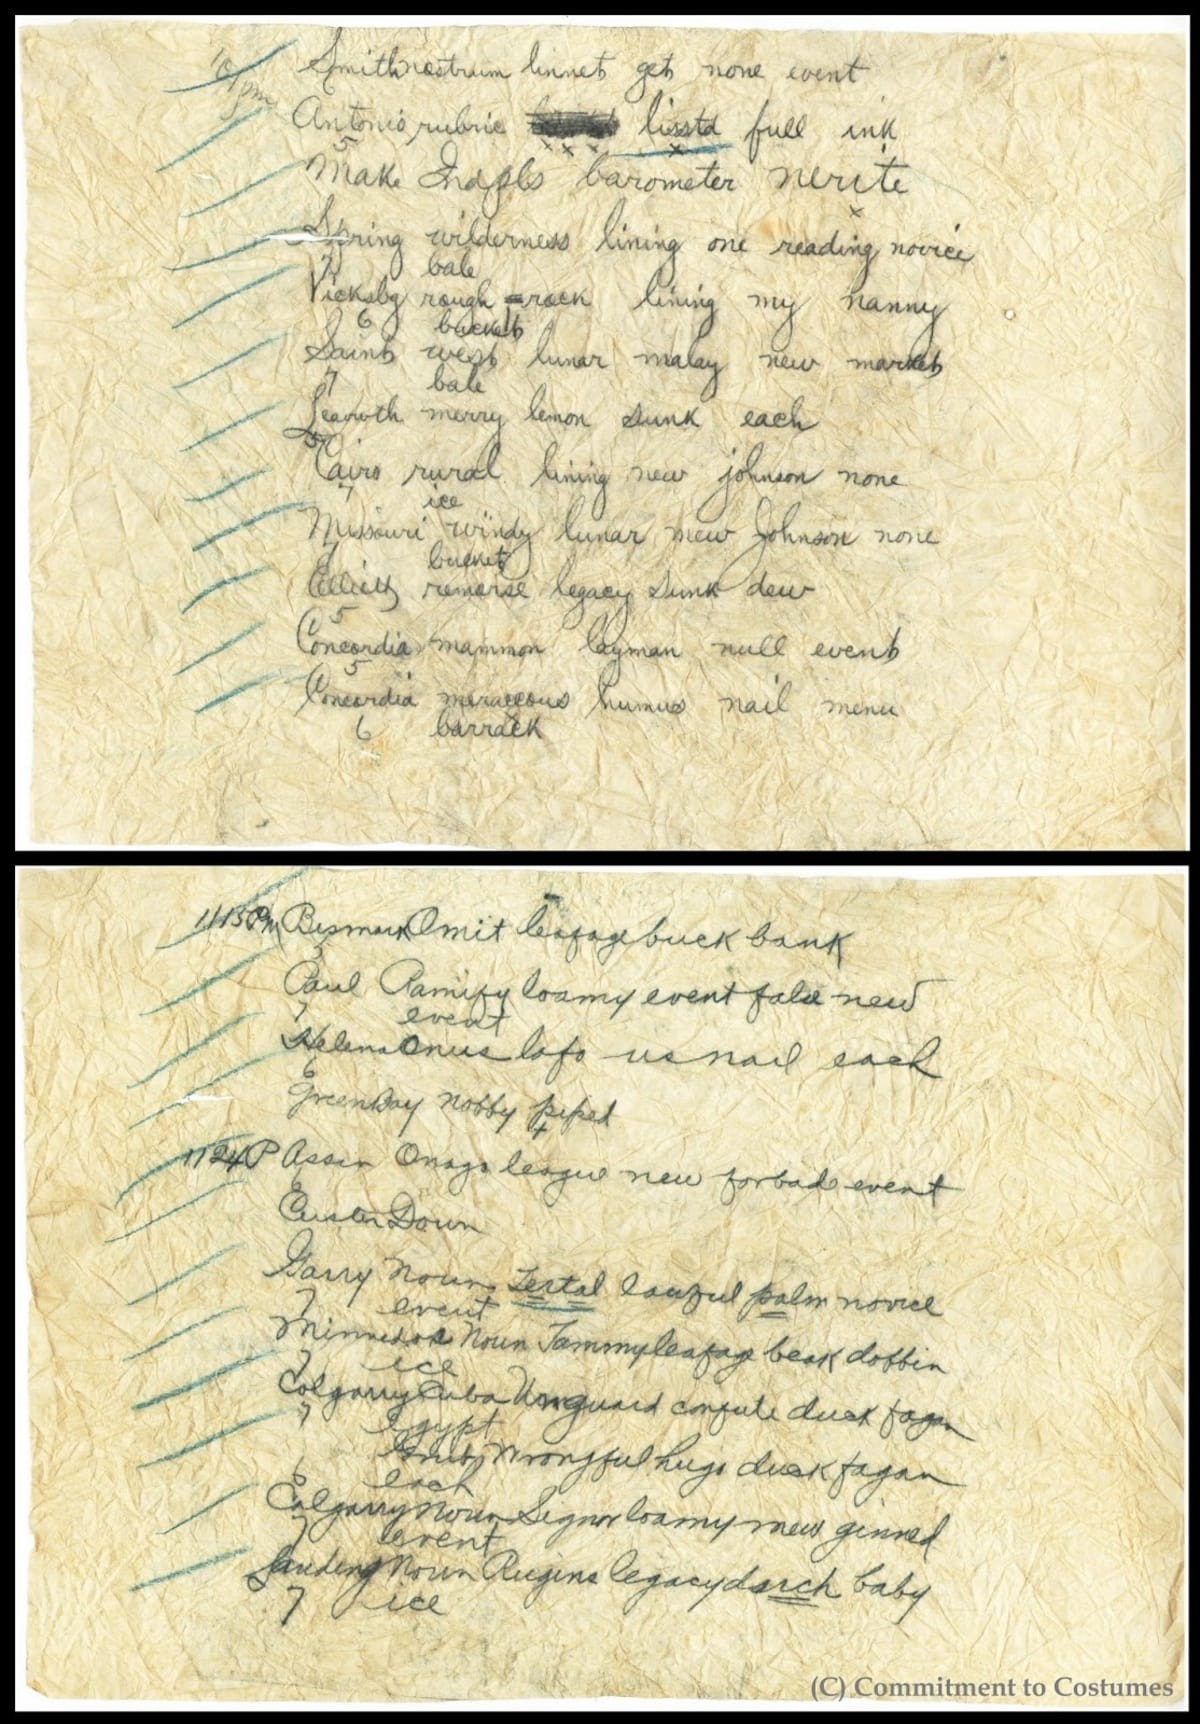 10 pm Smith nostrum linnet get none event
Antonio rubric lissta full ink
5
Make Indpls barometer nerite
Spring wilderness lining one reading novice
7 bale
Vicksbg rough rack lining my nanny
6 bucket
Saint west lunar malay new market
7 bale
Leavwth merry lemon sunk each
Cairo rural lining new johnson none
7 ice
Missouri windy lunar mew Johnson none
7 bucket
Elliott remorse legacy sunk dew
5
Concordia mammon layman null event
5
Concordia meraccous humus nail menu
6 barrack
1113 PM Bismark Omit leafage buck bank
Paul Ramify loamy event false new
7 event
Helena Onus lofo us nail each
6
Green Bay nobby piped
1124 P Assin Onago league new forbade event
6
Custer Down
Garry Noun Tertal lawful palm novice
7 event
Minnedos Noun Jammy leafage beak dobbin
7 ice
Calgarry Cuba Unguard confute duck fagan
7 Egypt
Wrongful hugo duck fagan
6 each
Calgarry Noun Signor loamy mew ginned
7 event
Landing Noun Rugins legacy duch baby
7 ice
(C) Commitment to Costumes